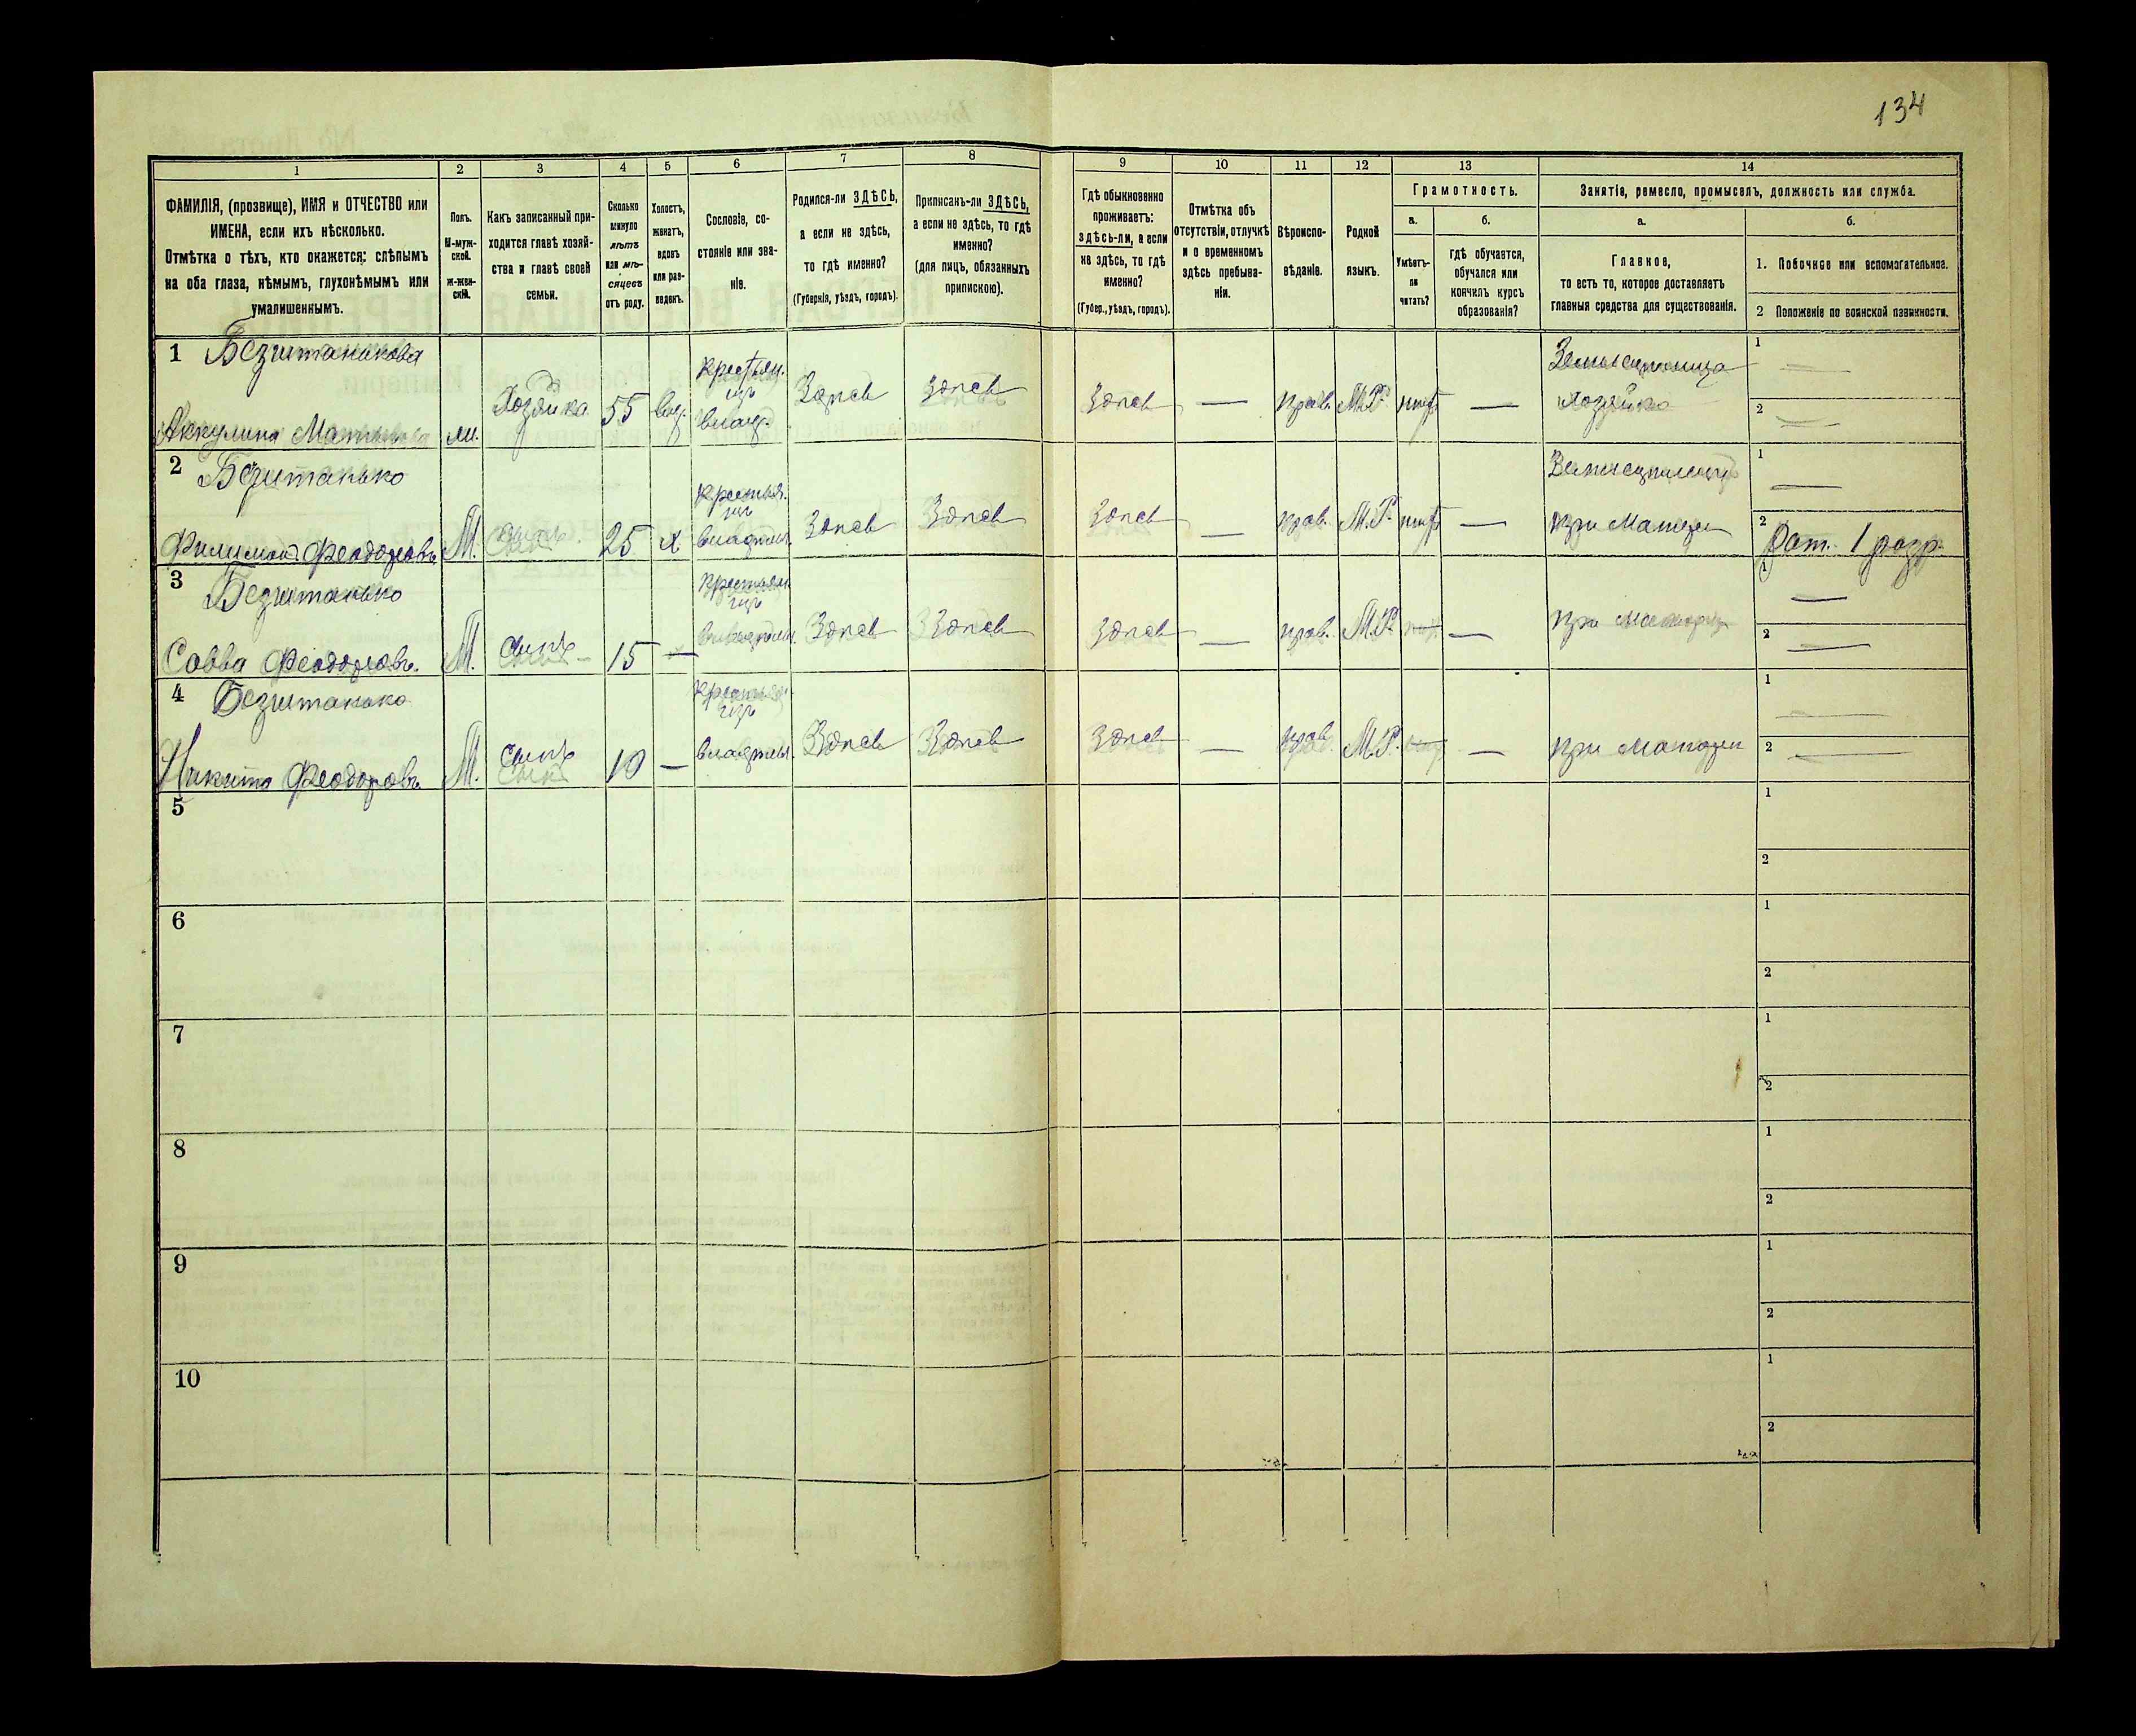 134
1
2
3
4
5
6
7
8
9
10
11
12
13
14
ФАМИЛІЯ, (прозвище), ИМЯ и ОТЧЕСТВО или
ИМЕНА, если ихъ нѣсколько.
Отмѣтка о тѣхъ, кто окажется: слѣпымъ
на оба глаза, нѣмымъ, глухонѣмымъ или
умалишеннымъ.
Полъ.
М-муж-
ской.
Ж-жен-
скій.
Какъ записанный при-
ходится главѣ хозяй-
ства и главѣ своей
семьи.
Сколько
минуло
лѣтъ
или мѣ-
сяцевъ
отъ роду.
Холостъ,
женатъ,
вдовъ
или раз-
веденъ.
Сословіе, со-
стояніе или зва-
ніе.
Родился-ли ЗДѢСЬ,
а если не здѣсь,
то гдѣ именно?
(Губернія, уѣздъ, городъ).
Приписанъ-ли ЗДѢСЬ,
а если не здѣсь, то гдѣ
именно?
(для лицъ, обязанныхъ
припискою).
Гдѣ обыкновенно
проживаетъ:
здѣсь-ли, а если
не здѣсь, то гдѣ
именно?
(Губер., уѣздъ, городъ).
Отмѣтка объ
отсутствіи, отлучкѣ
и о временномъ
здѣсь пребыва-
ніи.
Вѣроиспо-
вѣданіе.
Родной
языкъ.
Грамотность.
а.
б.
Умѣетъ-
ли
читать?
гдѣ обучается,
обучался или
кончилъ курсъ
образованія?
Занятіе, ремесло, промыселъ, должность или служба.
а.
б.
Главное,
то есть то, которое доставляетъ
главныя средства для существованія.
1. Побочное или вспомогательное.
2 Положеніе по воинской повинности.
1 Безштанькова
Аккулина
Хозяйка 55 вд. Крестьян. изъ владѣ. Здѣсь Здѣсь Здѣсь — прав. М.Р. нѣт —
Хозяйка
1 —
2 —
2 Безштанько
Филимонъ Феодоровъ М. Сынъ 25 х Крестья. изъ владѣльч. Здѣсь Здѣсь Здѣсь — прав. М.Р. нѣт —
при Матери
1 —
2 Рат. 1 разр.
3 Безштанько
Савва Феодоровъ. М. Сынъ 15 — Крестьян. изъ владѣльч. Здѣсь Здѣсь Здѣсь — прав. М.Р. —
при Матери
1 —
2 —
4 Безштанько
Никита Феодоровъ М. Сынъ 10 — Крестья. изъ владѣльч. Здѣсь Здѣсь Здѣсь — прав. М.Р. —
при Матери
1 —
2 —
5
1
2
6
1
2
7
1
2
8
1
2
9
1
2
10
1
2